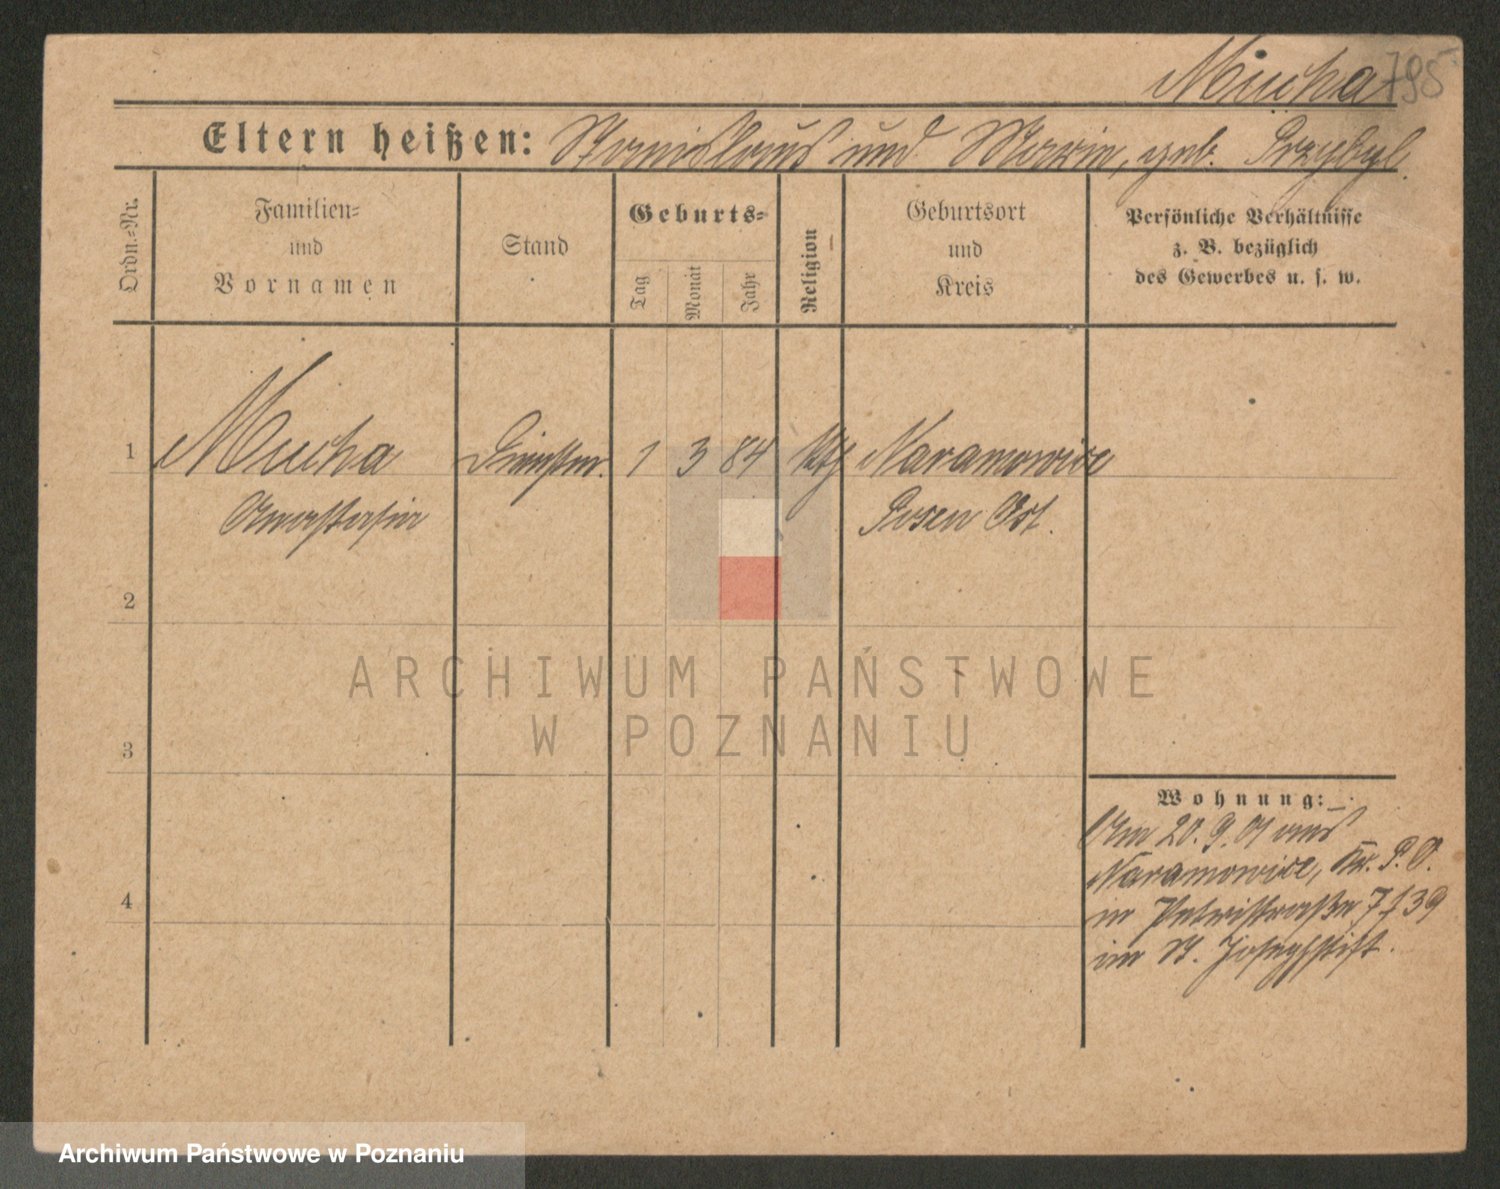 Mucha 795
Eltern heißen: Stanislaus und Marie, geb. Przybyl.
Ordn.-Nr.
Familien-
und
Vornamen
Stand
Geburts-
Tag
Monat
Jahr
Religion
Geburtsort
und
Kreis
Persönliche Verhältnisse
z. B. bezüglich
des Gewerbes u. s. w.
1 Mucha Dienstm. 1 3 84 kth Naramowice
Anastasia Posen Ost.
2
3
4
Wohnung:
Am 20.9.01 aus
Naramowice, Kr. P. O.
in Petristraße 7 f 39
im St. Josephstift.
ARCHIWUM PAŃSTWOWE
W POZNANIU
Archiwum Państwowe w Poznaniu